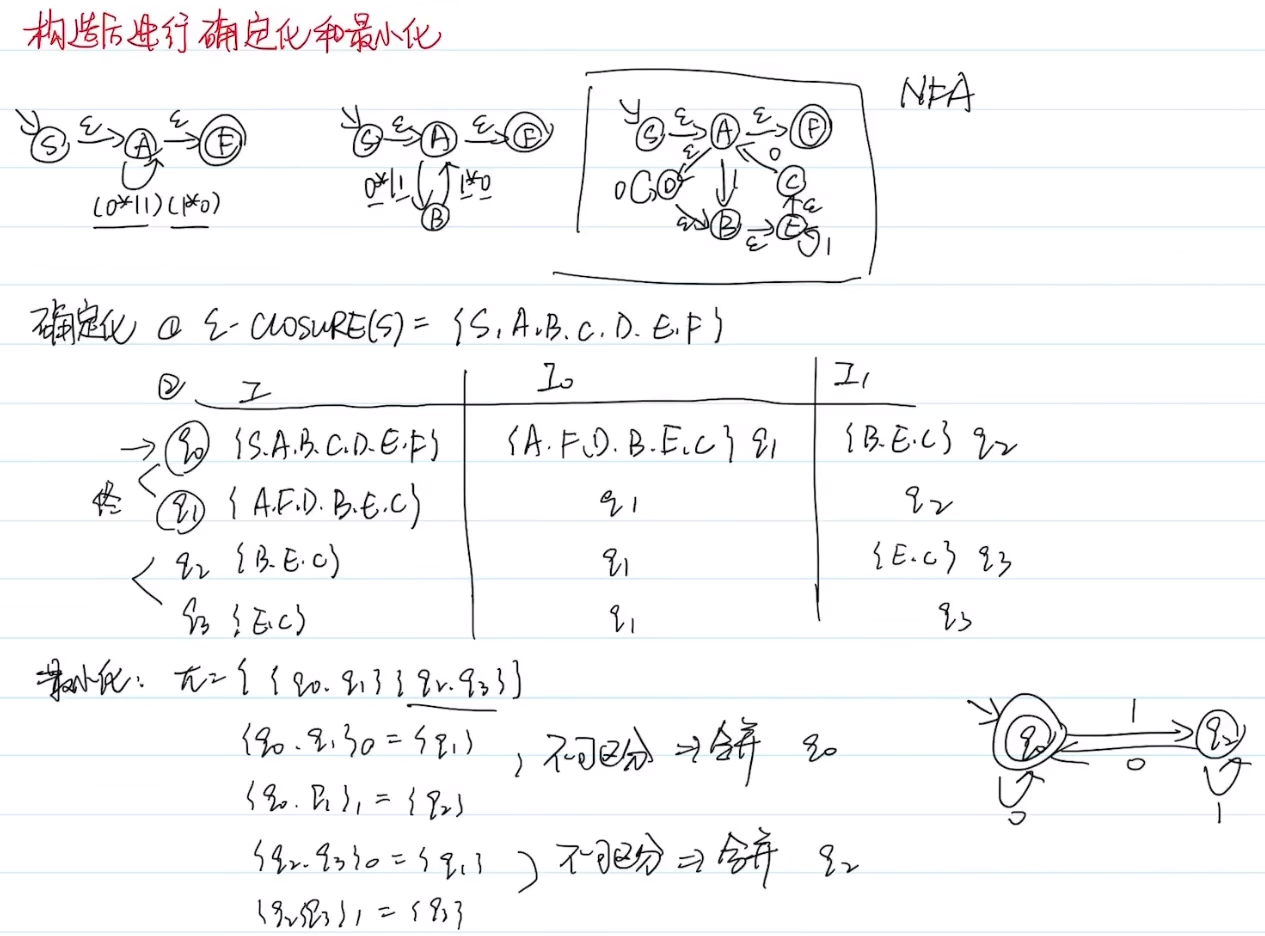 构造后进行确定化和最小化
S ε A ε F
(0*|1)(1*0)
S ε A ε F
0*|1 1*0
B
S ε A ε F
ε 0
0 D 1 C
ε B ε E ε 1
NFA
确定化 ① ε-CLOSURE(S) = {S.A.B.C.D.E.F}
② I I0 I1
→ q0 {S.A.B.C.D.E.F} {A.F.D.B.E.C} q1 {B.E.C} q2
终 q1 {A.F.D.B.E.C} q1 q2
q2 {B.E.C} q1 {E.C} q3
q3 {E.C} q1 q3
最小化: π = { {q0.q1} {q2.q3} }
{q0.q1}0 = {q1} , 不可区分 ⇒ 合并 q0
{q0.q1}1 = {q2}
{q2.q3}0 = {q1} 不可区分 ⇒ 合并 q2
{q2q3}1 = {q3}
q0 1 q2
0
0 1